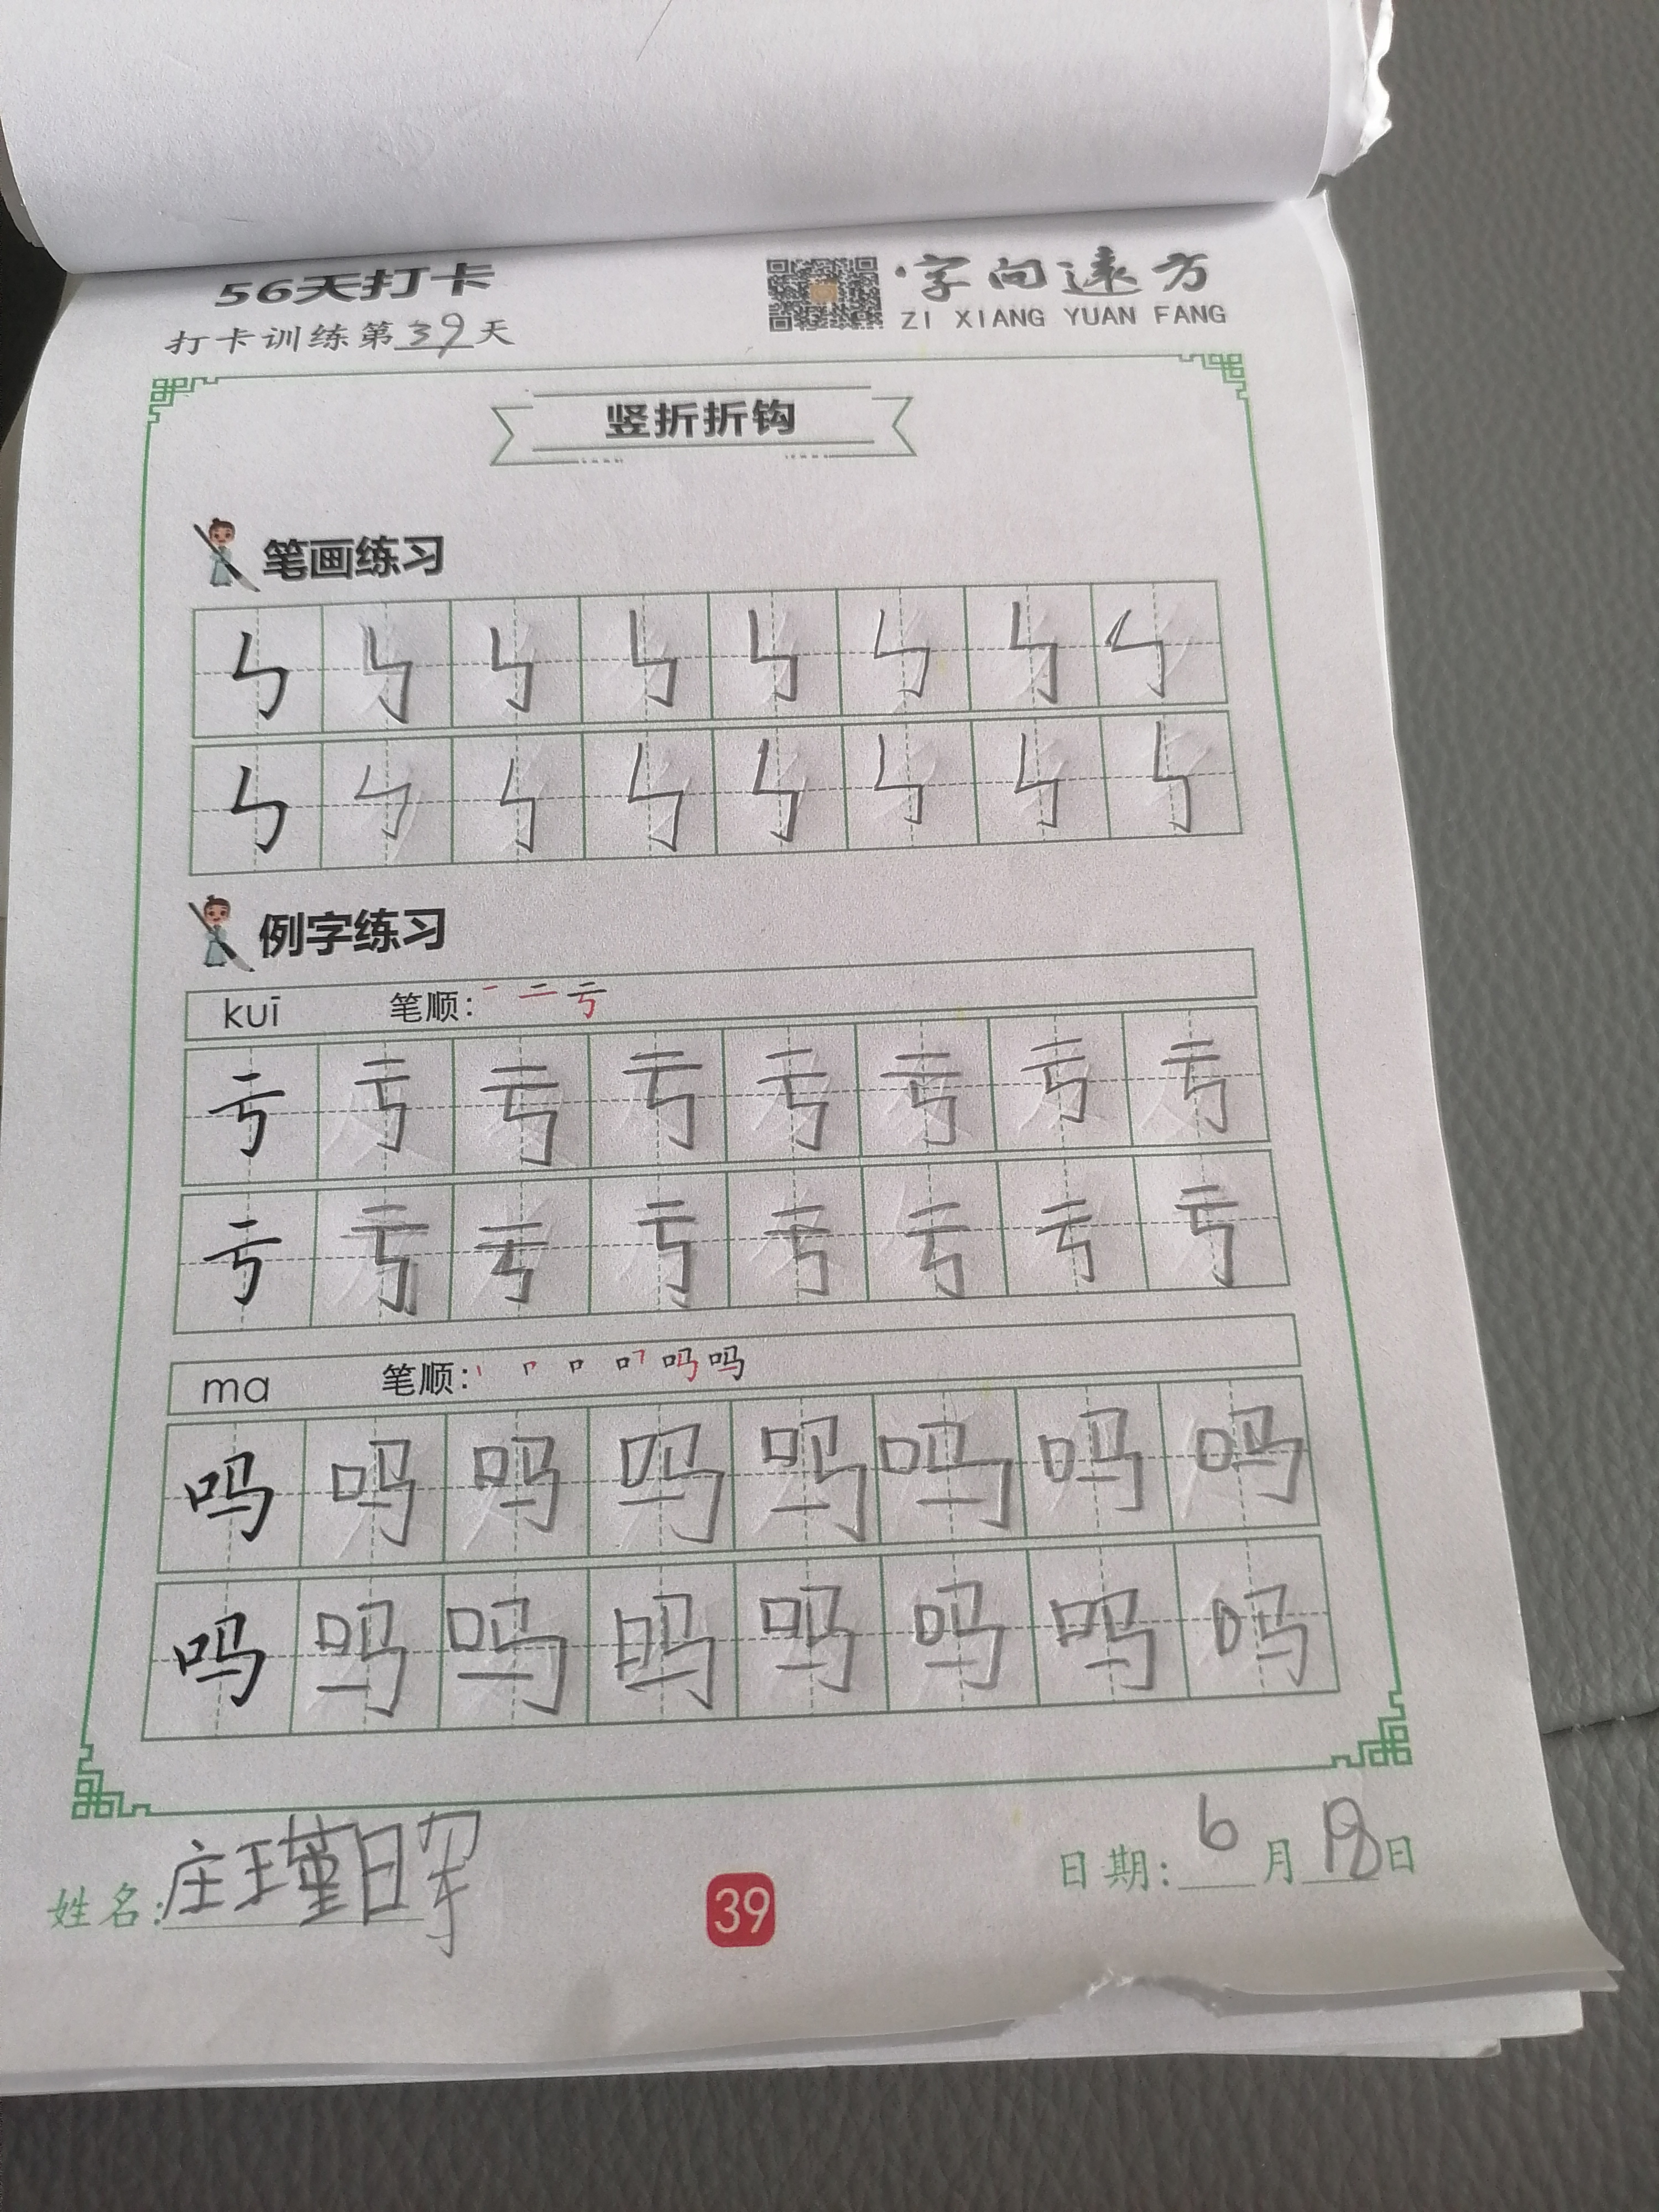 56天打卡
字向远方
打卡训练第39天
ZI XIANG YUAN FANG
竖折折钩
笔画练习
ㄣ ㄣ ㄣ ㄣ ㄣ ㄣ ㄣ ㄣ
ㄣ ㄣ ㄣ ㄣ ㄣ ㄣ ㄣ ㄣ
例字练习
kuī 笔顺: 一 二 亏
亏 亏 亏 亏 亏 亏 亏 亏
亏 亏 亏 亏 亏 亏 亏 亏
ma 笔顺: 丨 口 吗 吗
吗 吗 吗 吗 吗 吗 吗 吗
吗 吗 吗 吗 吗 吗 吗 吗
姓名: 庄瑾
39
日期: 6月18日